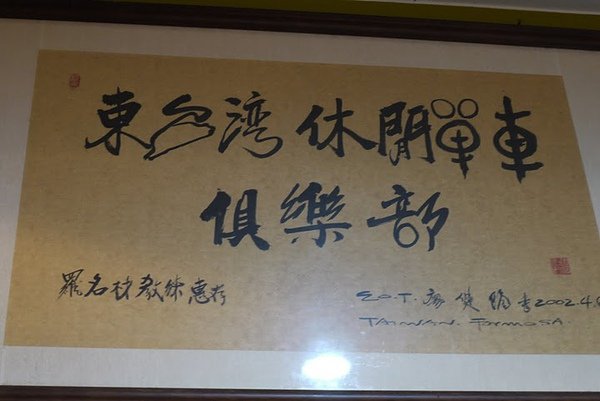 東台湾休閒單車
俱樂部
羅名材教練惠存
E.O.T. 健 書 2002.4.
TAIWAN. FORMOSA